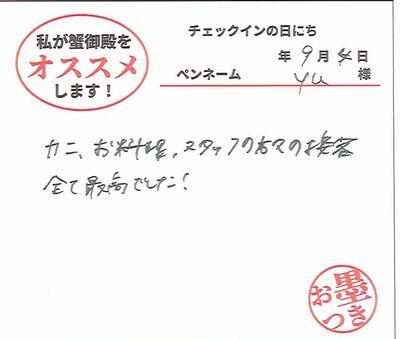 私が蟹御殿を
オススメ
します!
チェックインの日にち
年 9月 4日
ペンネーム yu 様
カニ、お料理、スタッフの方々の接客
全て最高でした!
お墨
つき